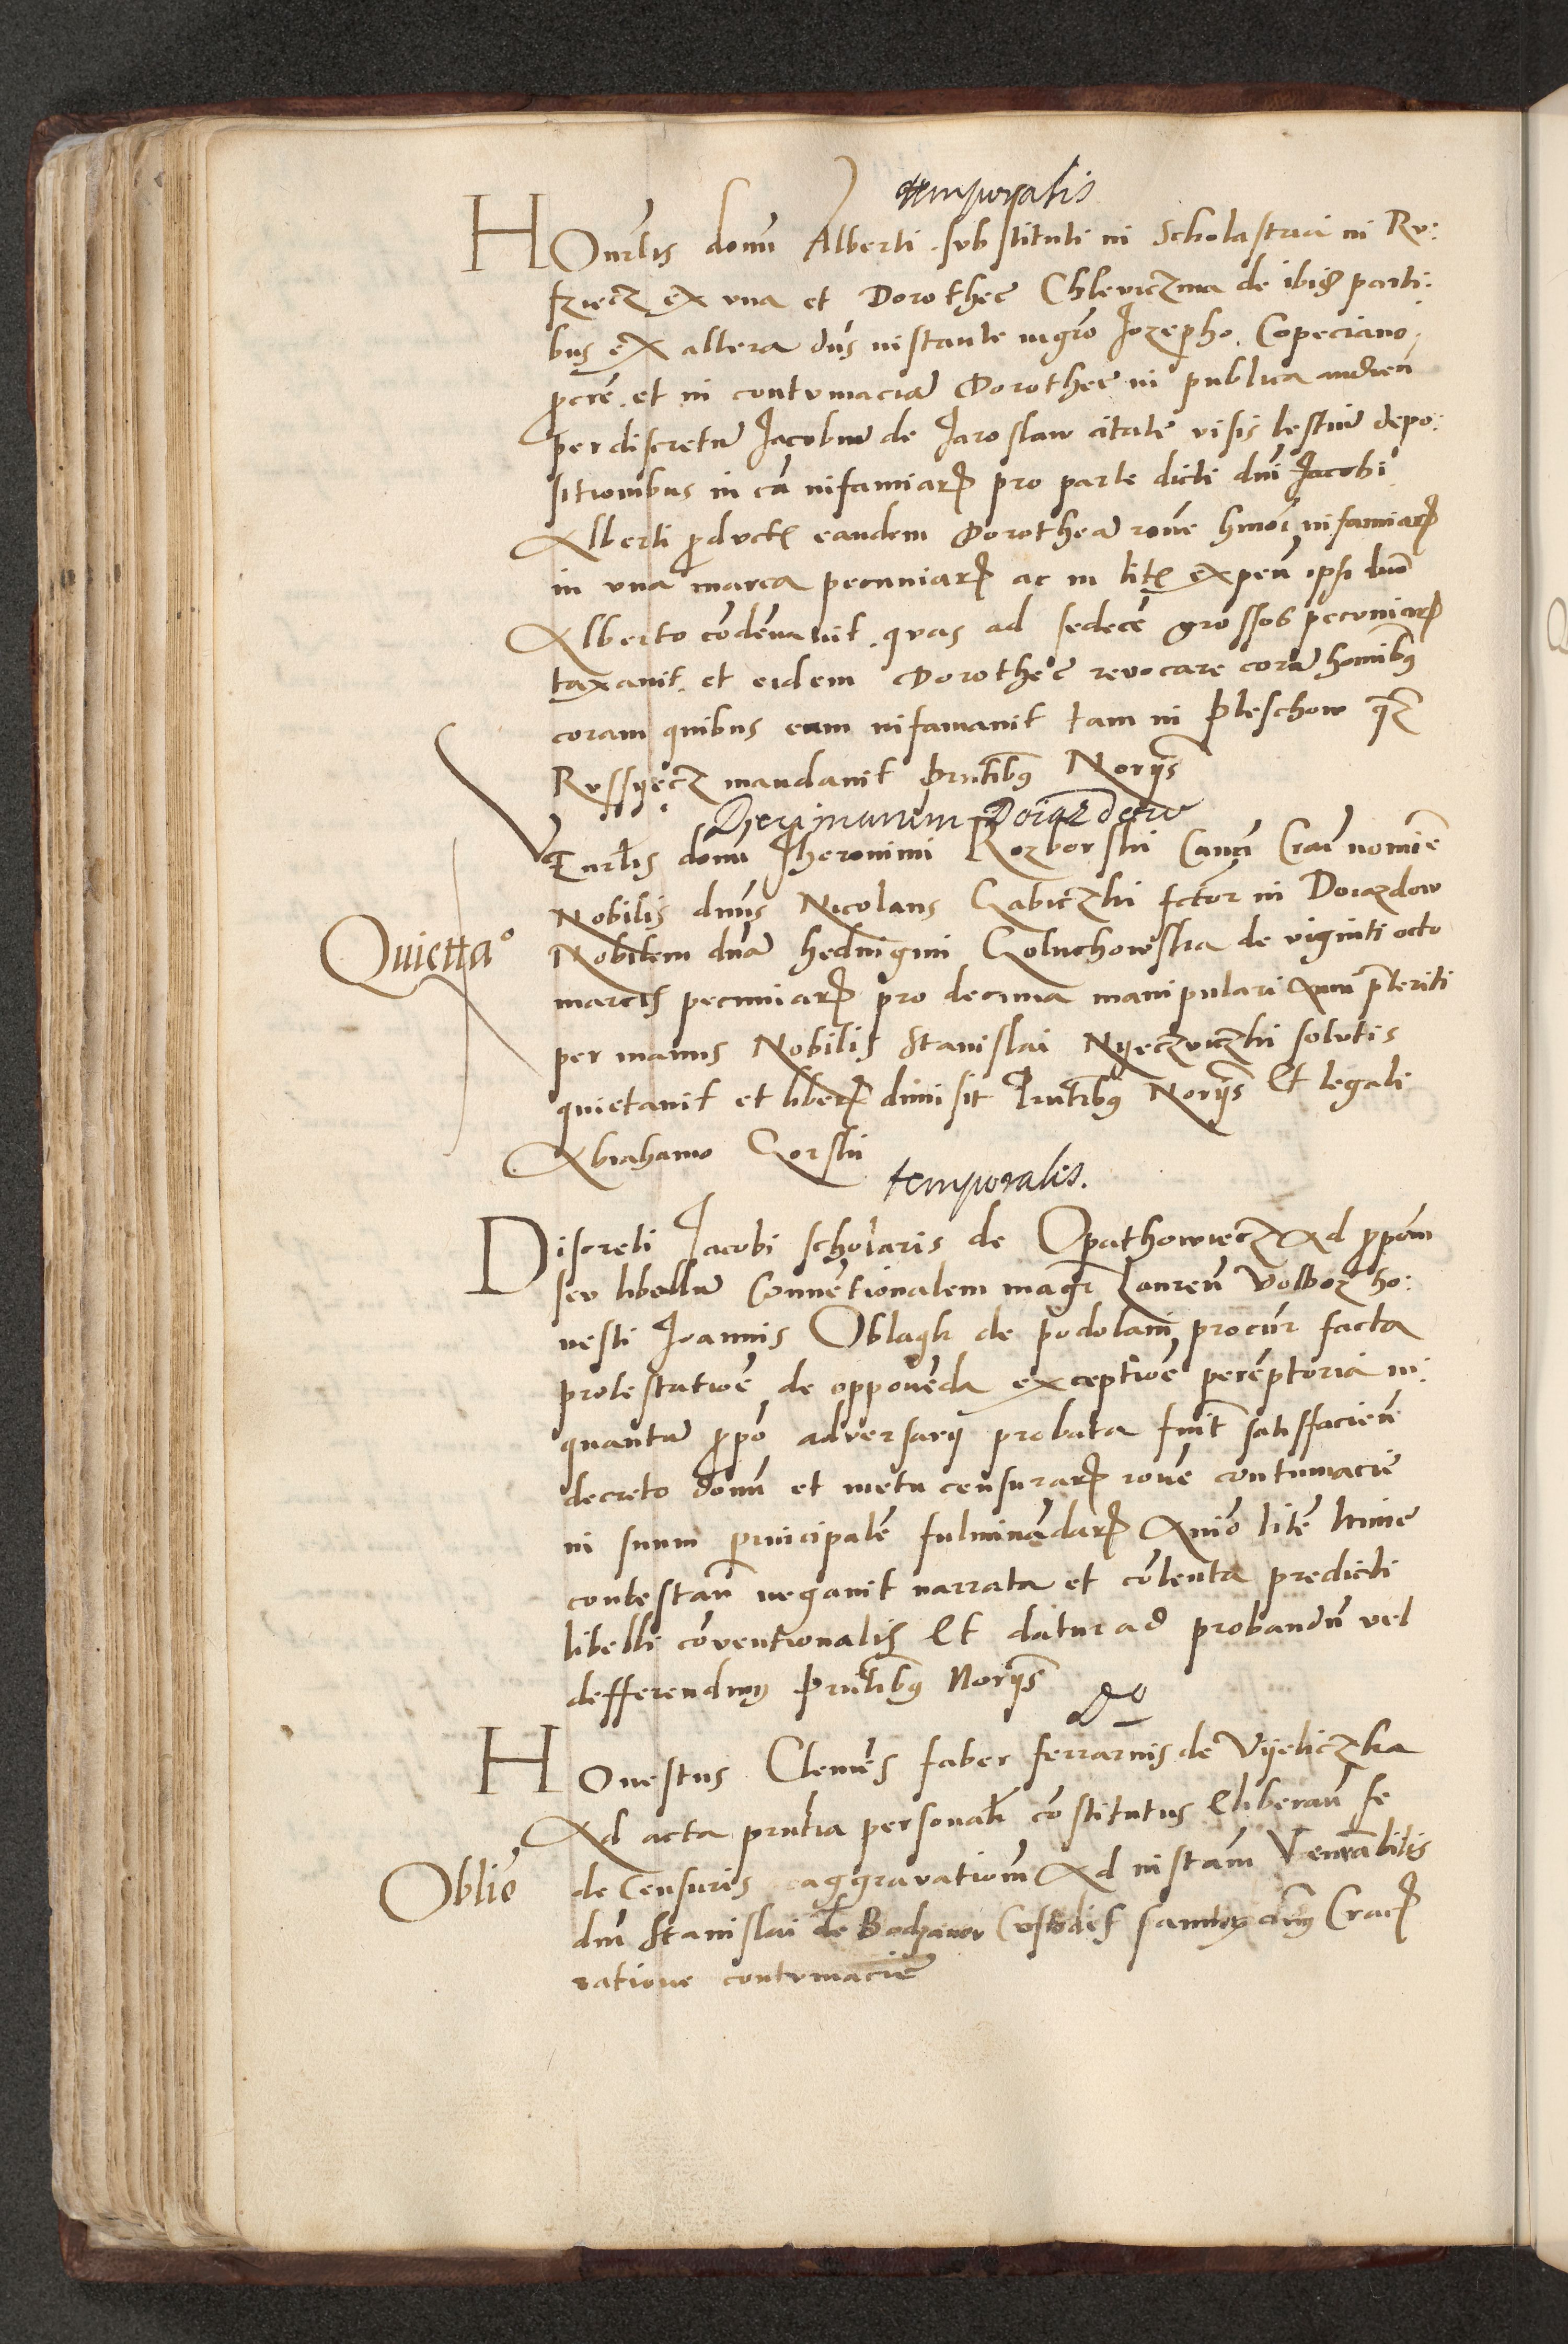 temporalis
HOnrlis domi Alberti substituti in Scholastria in Ru:
sziecz ex una et Dorothee Chlewiczma de ibid parti:
bus ex altera dns instante mgro Jozepho Copeciano
procre et in contumaciam Dorothee in publica audien
per discretum Jacobum de Jaroslaw citate visis testium depo:
sitionibus in ca infamiarum pro parte dicti dni Jacobi
Alberti product eandem Dorotheam rone hmoi infamiarum
in una marca pecuniarum ac in litis expen ipsi dno
Alberto condemnavit quas ad sedecem grossos pecuniarum
taxavit et eidem Dorothee revocare coram hominibus
coram quibus eum infamavit tam in Pleschow
Russyecz mandavit Pntibus Noriis
Decimarum Doiazdow
Venrlis domi Jheronimi Rozborski Canci Crac nomine
Nobilis dnus Nicolaus Gabiczki fctor in Doiazdow
Quietta°
Nobilem dnam hedvigim Goluchowska de viginti octo
marcis pecuniarum pro decima manipulari Anni preteriti
per manus Nobilis Stanislai Nyeczviczki solutis
quietavit et liberum dimisit Pntibus Noriis Et legali
Abrahamo Gorski
temporalis.
Discreti Jacobi scholaris de Opathowiecz Ad propom
seu libellum Conventionalem magri Lauren Volborz ho:
nesti Joannis Oblagk de podolani procur facta
protestatione de opponenda exceptione peremptoria in
quantum propo adversarii probata fuit satisfacien
decreto domi et metu censurarum rone contumacie
in suum principalem fulminandarum Animo litem
contestan negavit narrata et contenta predicti
libelli conventionalis Et datur ad probandum vel
defferendum Pntibus Noriis
HOnestus Clemes faber ferrarius de Vyeliczka
Ad acta pntia personalr constitutus Eliberan se
Oblio
de Censuris aggravationum Ad instam Venerabilis
dni Stanislai de Bodzanow Custodis Crac
ratione contumacie